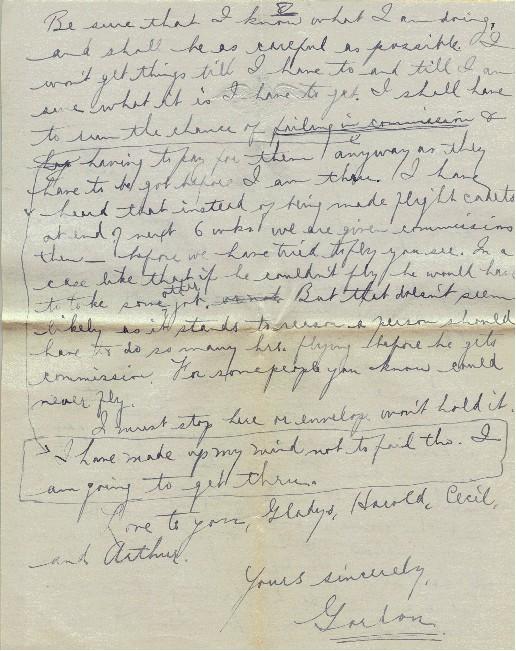 V
Be sure that I know what I am doing,
and shall be as careful as possible. I
won't get things till I have to and till I am
sure what it is I have to get. I shall have
to run the chance of failing in commission &
having to pay for them anyway as they
have to be got before I am thru. I have
heard that instead of being made flight cadets
at end of next 6 wks we are given commissions
then — before we have tried to fly you see. In a
case like that if he couldn't fly he would have
to take some other job. or not But that doesn't seem
likely as it stands to reason a person should
have to do so many hrs. flying before he gets
commission. For some people you know could
never fly.
I must stop here or envelope won't hold it.
I have made up my mind not to fail tho. I
am going to get thru.
Love to you, Gladys, Harold, Cecil,
and Arthur.
Yours sincerely,
Gordon.